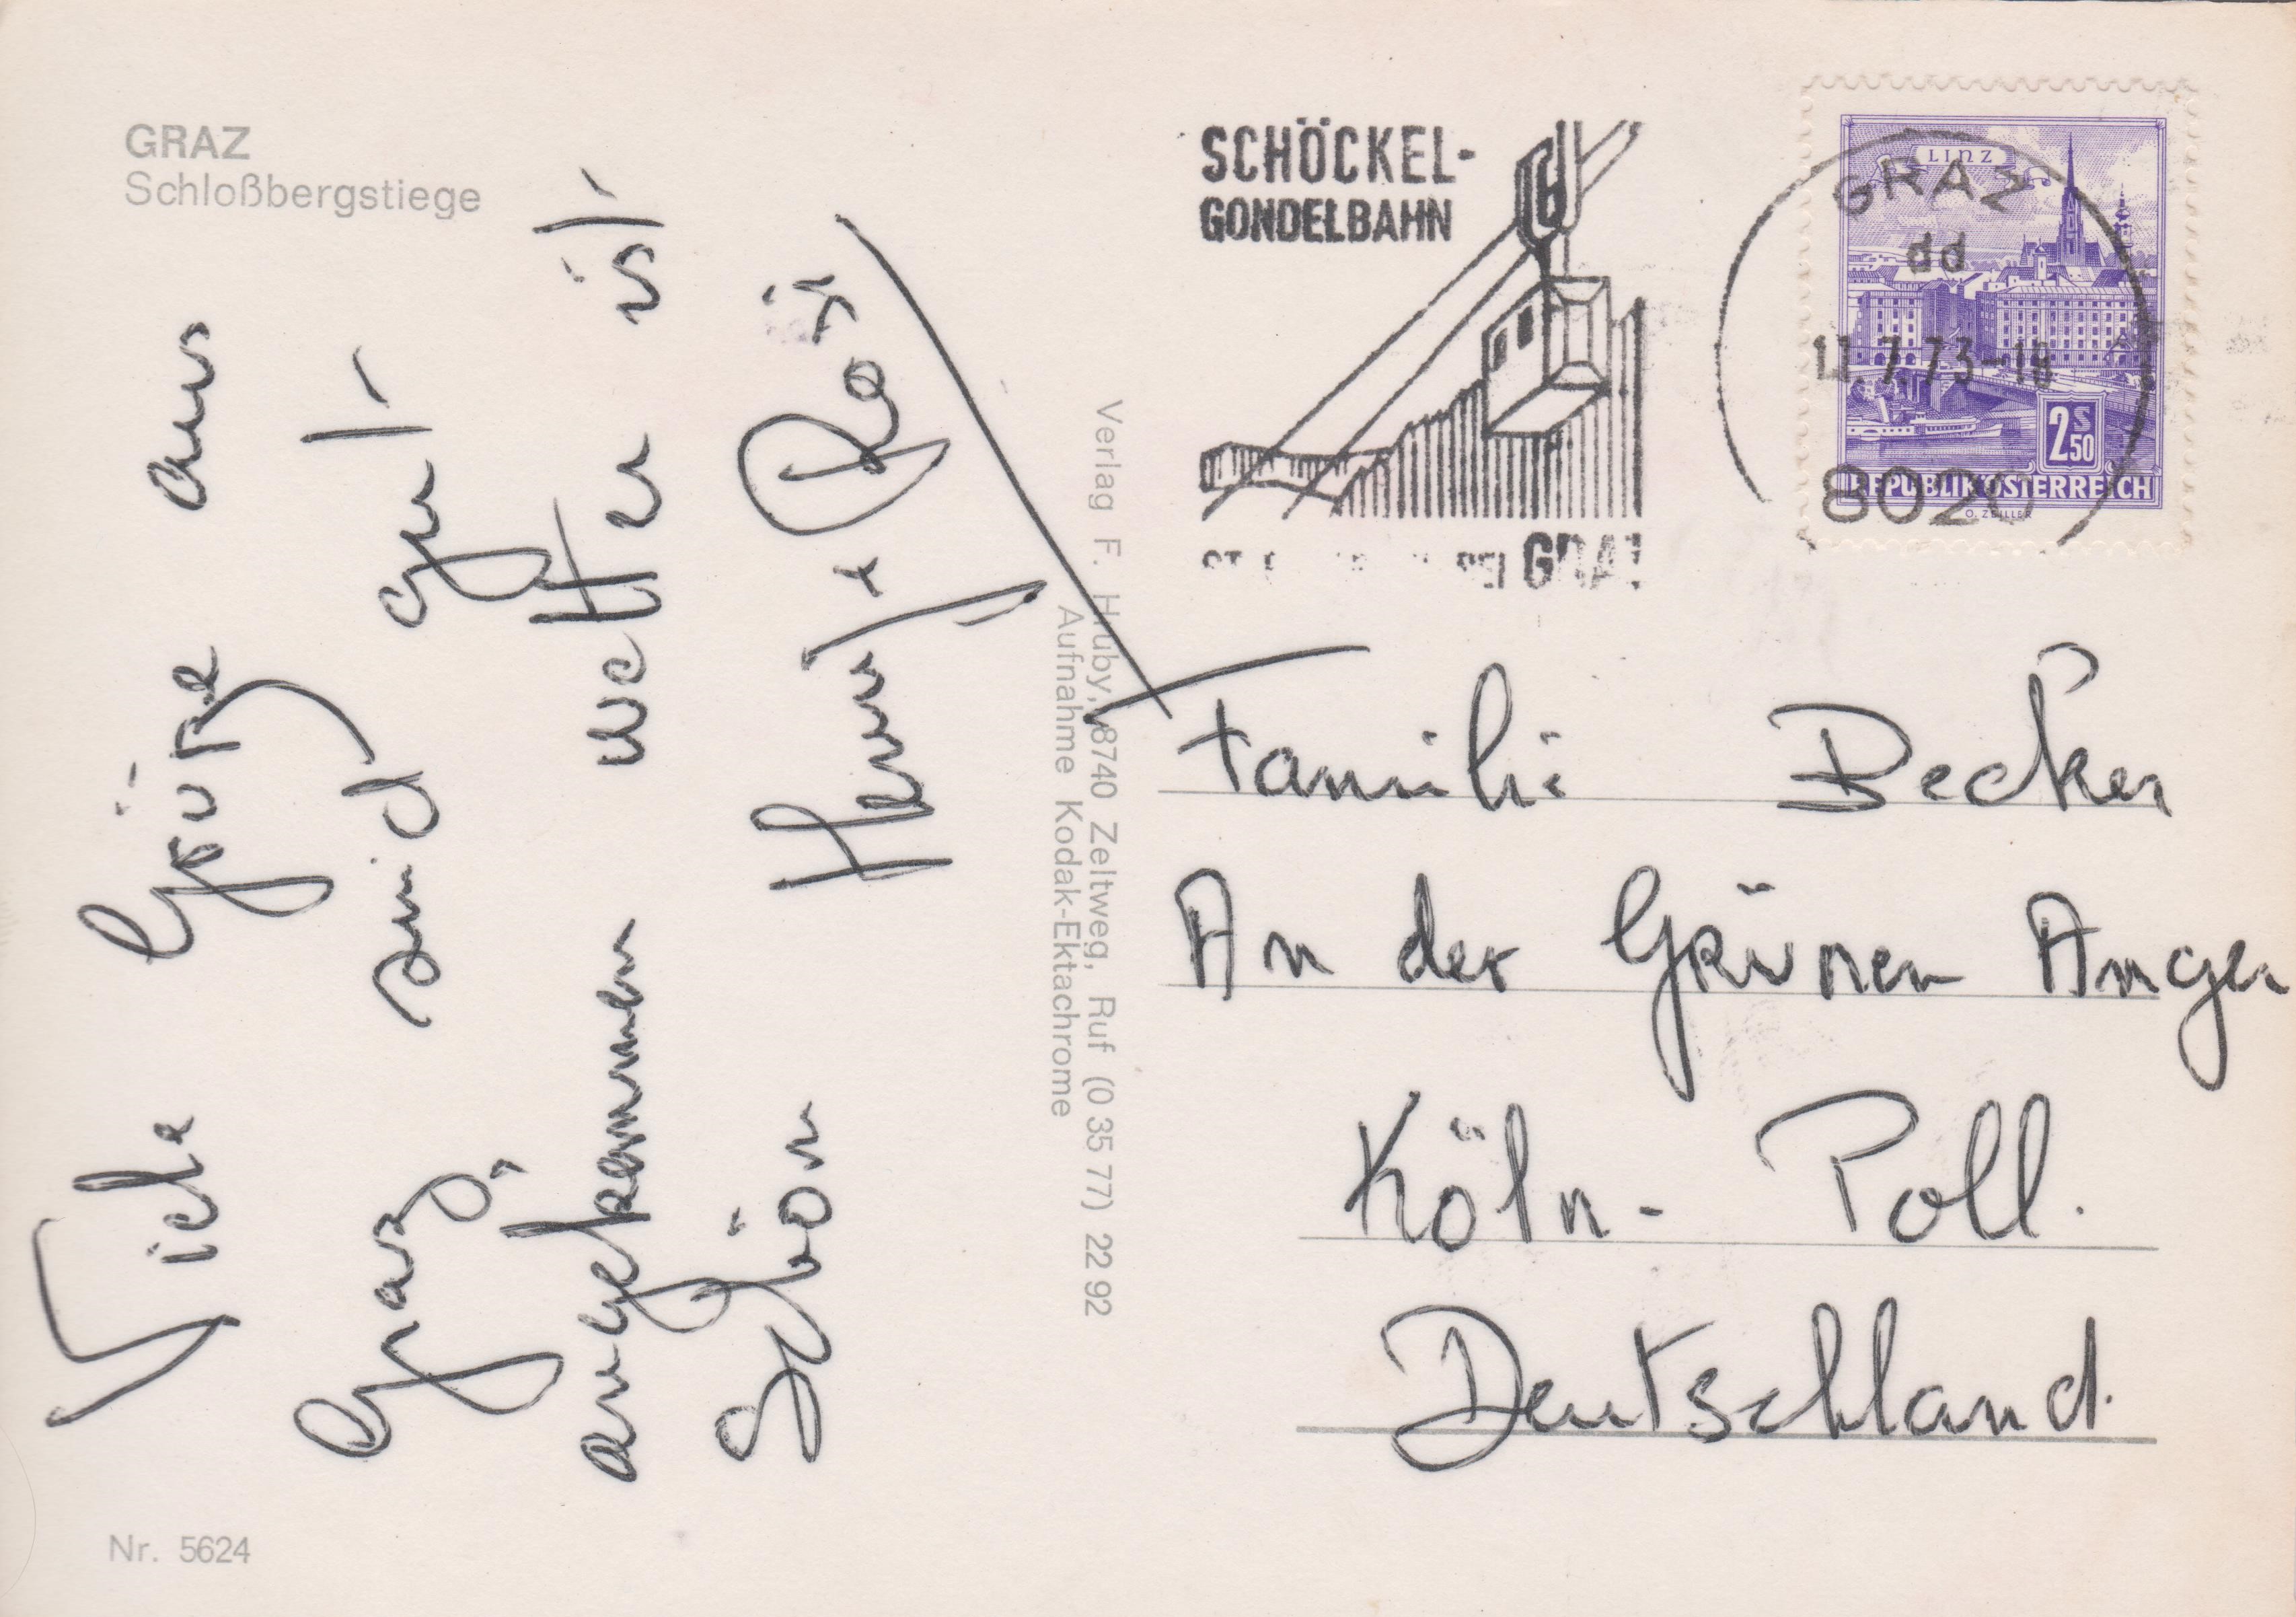 GRAZ
Schloßbergstiege
Viele Grüße aus
Graz, sind gut
angekommen Wetter ist
Schön
Rosi
Nr. 5624
Verlag F. Hruby, 8740 Zeltweg, Ruf (0 35 77) 22 92
Aufnahme Kodak-Ektachrome
SCHÖCKEL-
GONDELBAHN
BEI GRAZ
LINZ
GRAZ
dd
7.73-18
8020
2S50
REPUBLIK ÖSTERREICH
O. ZEILLER
Familie Becker
An der Grünen Anger
Köln-Poll.
Deutschland.